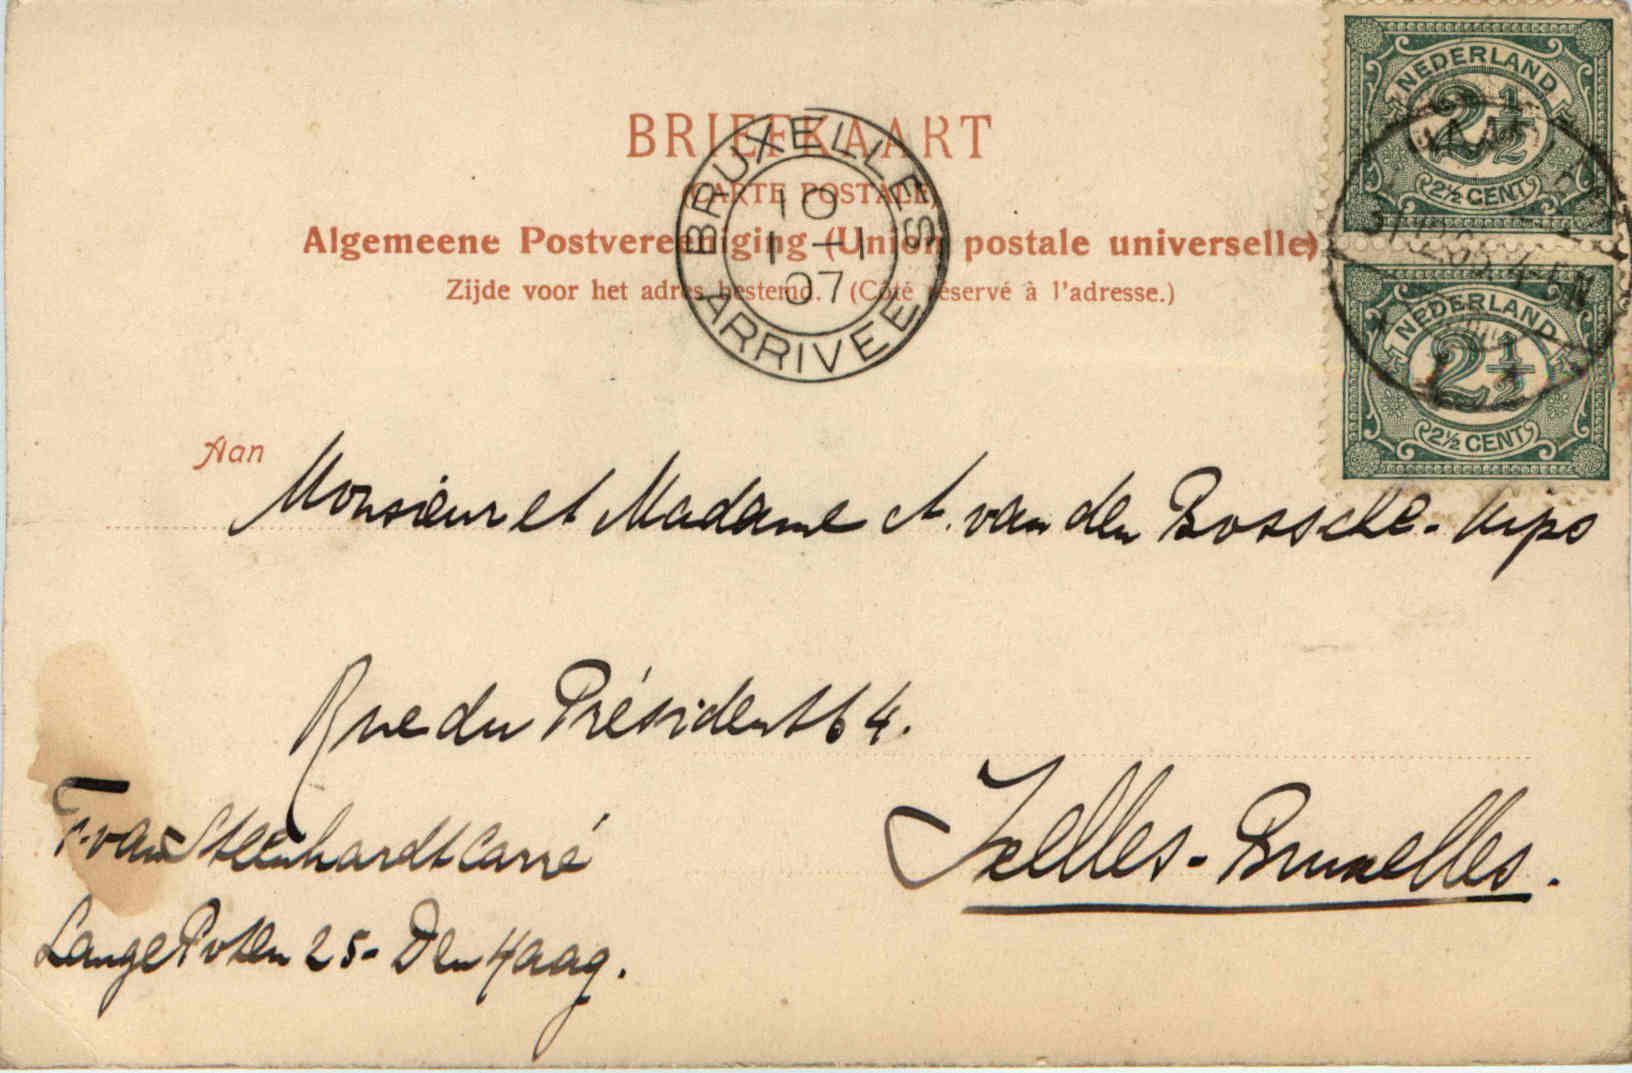 BRIEFKAART
(CARTE POSTALE)
Algemeene Postvereeniging (Union postale universelle)
Zijde voor het adres bestemd. (Côté réservé à l'adresse.)
BRUXELLES
10
1-1
07
ARRIVEE
NEDERLAND
2½
2½ CENT
NEDERLAND
2½
2½ CENT
4-5N
Aan
Monsieur et Madame A. van den Bossche-
Rue du Président 64.
Ixelles-Bruxelles.
F. van Steenhardt Carré
Lange Poten 25- Den Haag.